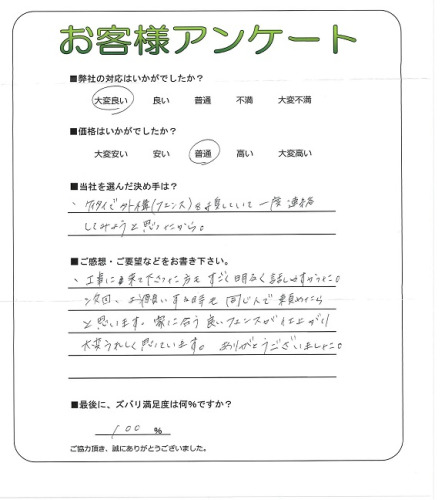 お客様アンケート
■弊社の対応はいかがでしたか?
大変良い 良い 普通 不満 大変不満
■価格はいかがでしたか?
大変安い 安い 普通 高い 大変高い
■当社を選んだ決め手は?
、ケイタイで外構(フェンス)を探していて一度連絡
してみようと思ったから。
■ご感想・ご要望などをお書き下さい。
、工事に来て下さった方もすごく明るく話しやすかった。
次回、お願いする時も同じ人で頼めたら
と思います。家に合う良いフェンスが仕上がり
大変うれしく思っています。ありがとうございました。
■最後に、ズバリ満足度は何%ですか?
100 %
ご協力頂き、誠にありがとうございました。